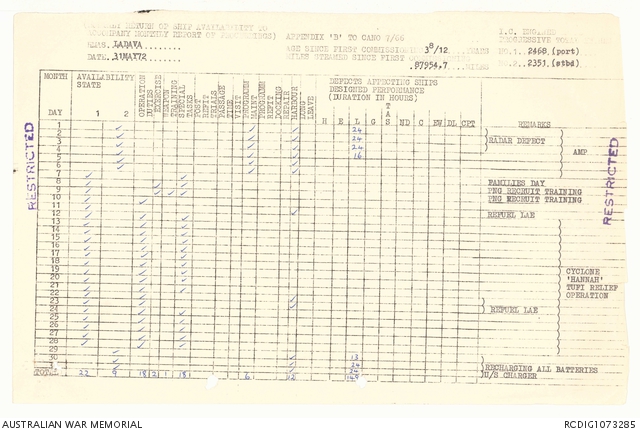 RETURN OF SHIP AVAILABILITY TO
ACCOMPANY MONTHLY REPORT OF PROCEEDINGS) APPENDIX 'B' TO CANO 7/66
H.C. ENGINED
HMAS. LADAVA
AGE SINCE FIRST COMMISSION 3 8/12
NO.1. 2468 (port)
DATE. 31MAY72
MILES STEAMED SINCE FIRST 97954.7 MILES
NO.2. 2351 (stbd)
MONTH
DAY
AVAILABILITY
STATE
1 2
OPERATION
DUTIES
EXERCISE
WEAPON
TRAINING
SPECIAL
TASKS
POST
REFIT
TRIALS
PASSAGE
TIME
VISIT
PROGRAMM
MAINT
PROGRAMM
REFIT
DOCKING
REPAIR
HARBOUR
LONG
LEAVE
DEFECTS AFFECTING SHIPS
DESIGNED PERFORMANCE
(DURATION IN HOURS)
H E L G TAS ND C EW DL CPT
REMARKS
1
2 24
3 24 RADAR DEFECT
4 24
5 16 AMP
6
7
8 FAMILIES DAY
9 PNG RECRUIT TRAINING
10 PNG RECRUIT TRAINING
11
12 REFUEL LAE
13
14
15
16
17
18
19 CYCLONE
20 'HANNAH'
21 TUFI RELIEF
22 OPERATION
23
24 REFUEL LAE
25
26
27
28
30 13
24 RECHARGING ALL BATTERIES
TOTAL 22 9 18 2 1 18 6 U/S CHARGER
RESTRICTED
RESTRICTED
AUSTRALIAN WAR MEMORIAL
RCDIG1073285